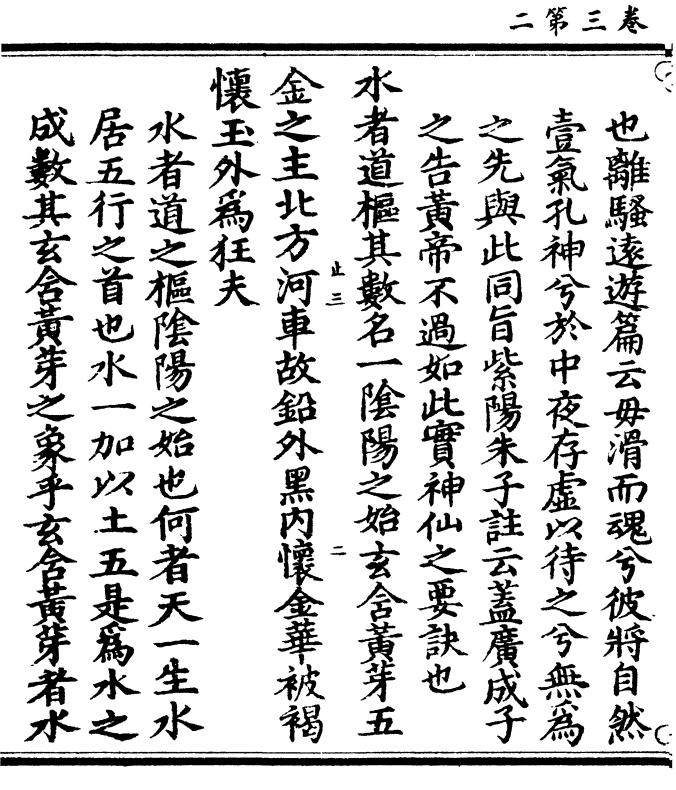 卷三第二
也離騷遠遊篇云毋滑而魂兮彼將自然
壹氣孔神兮於中夜存虛以待之兮無為
之先與此同旨紫陽朱子註云蓋廣成子
之告黃帝不過如此實神仙之要訣也
水者道樞其數名一陰陽之始玄含黃芽五
金之主北方河車故鉛外黑內懷金華被褐
懷玉外為狂夫
水者道之樞陰陽之始也何者天一生水
居五行之首也水一加以土五是為水之
成數其玄含黃芽之象乎玄含黃芽者水
止三
二